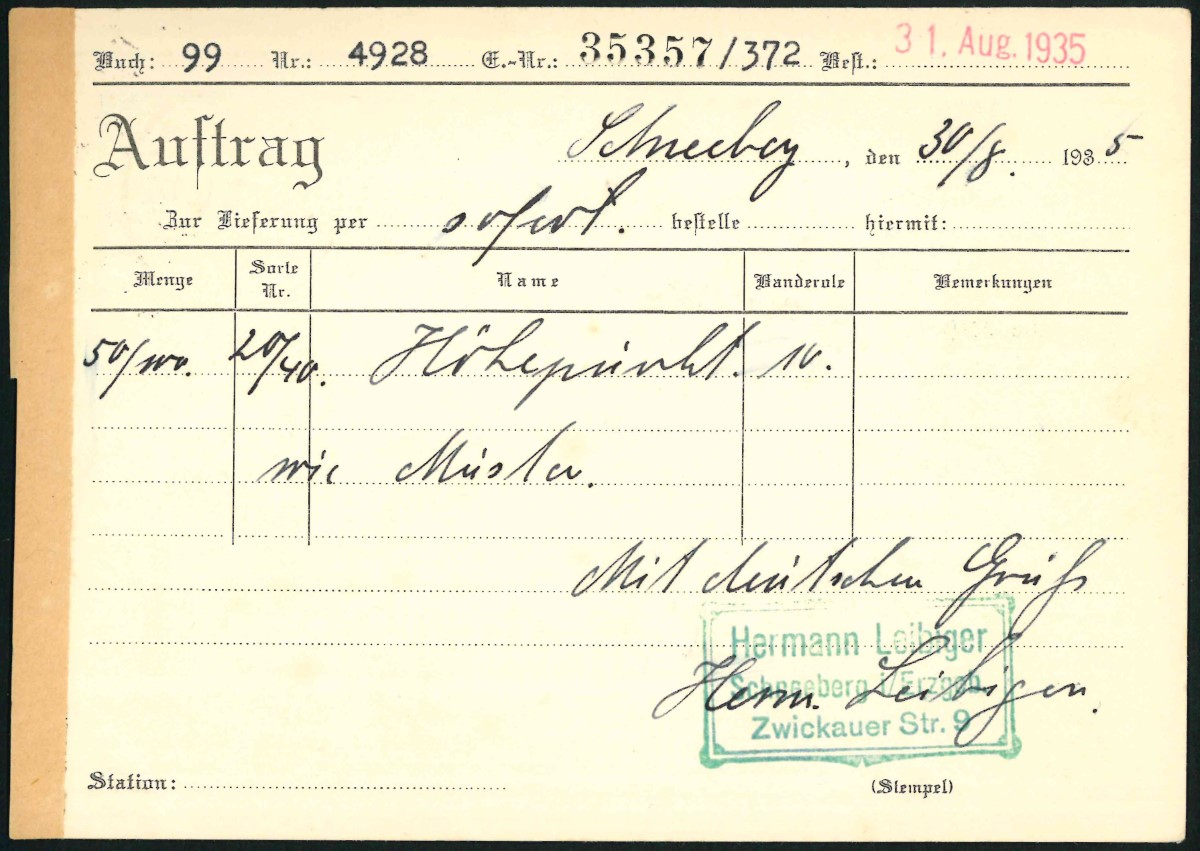 Buch: 99 Nr.: 4928 E.-Nr.: 35357/372 Best.: 31. Aug. 1935
Auftrag
Schneeberg, den 30/8. 1935
Zur Lieferung per sofort. bestelle hiermit:
Menge Sorte Nr. Name Banderole Bemerkungen
50/100. 20/40. Höhepunkt. 10.
wie Muster.
Mit deutschen Gruß
Hermann Leibiger
Schneeberg i/Erzgeb.
Herm. Leibiger.
Zwickauer Str. 9
Station: (Stempel)